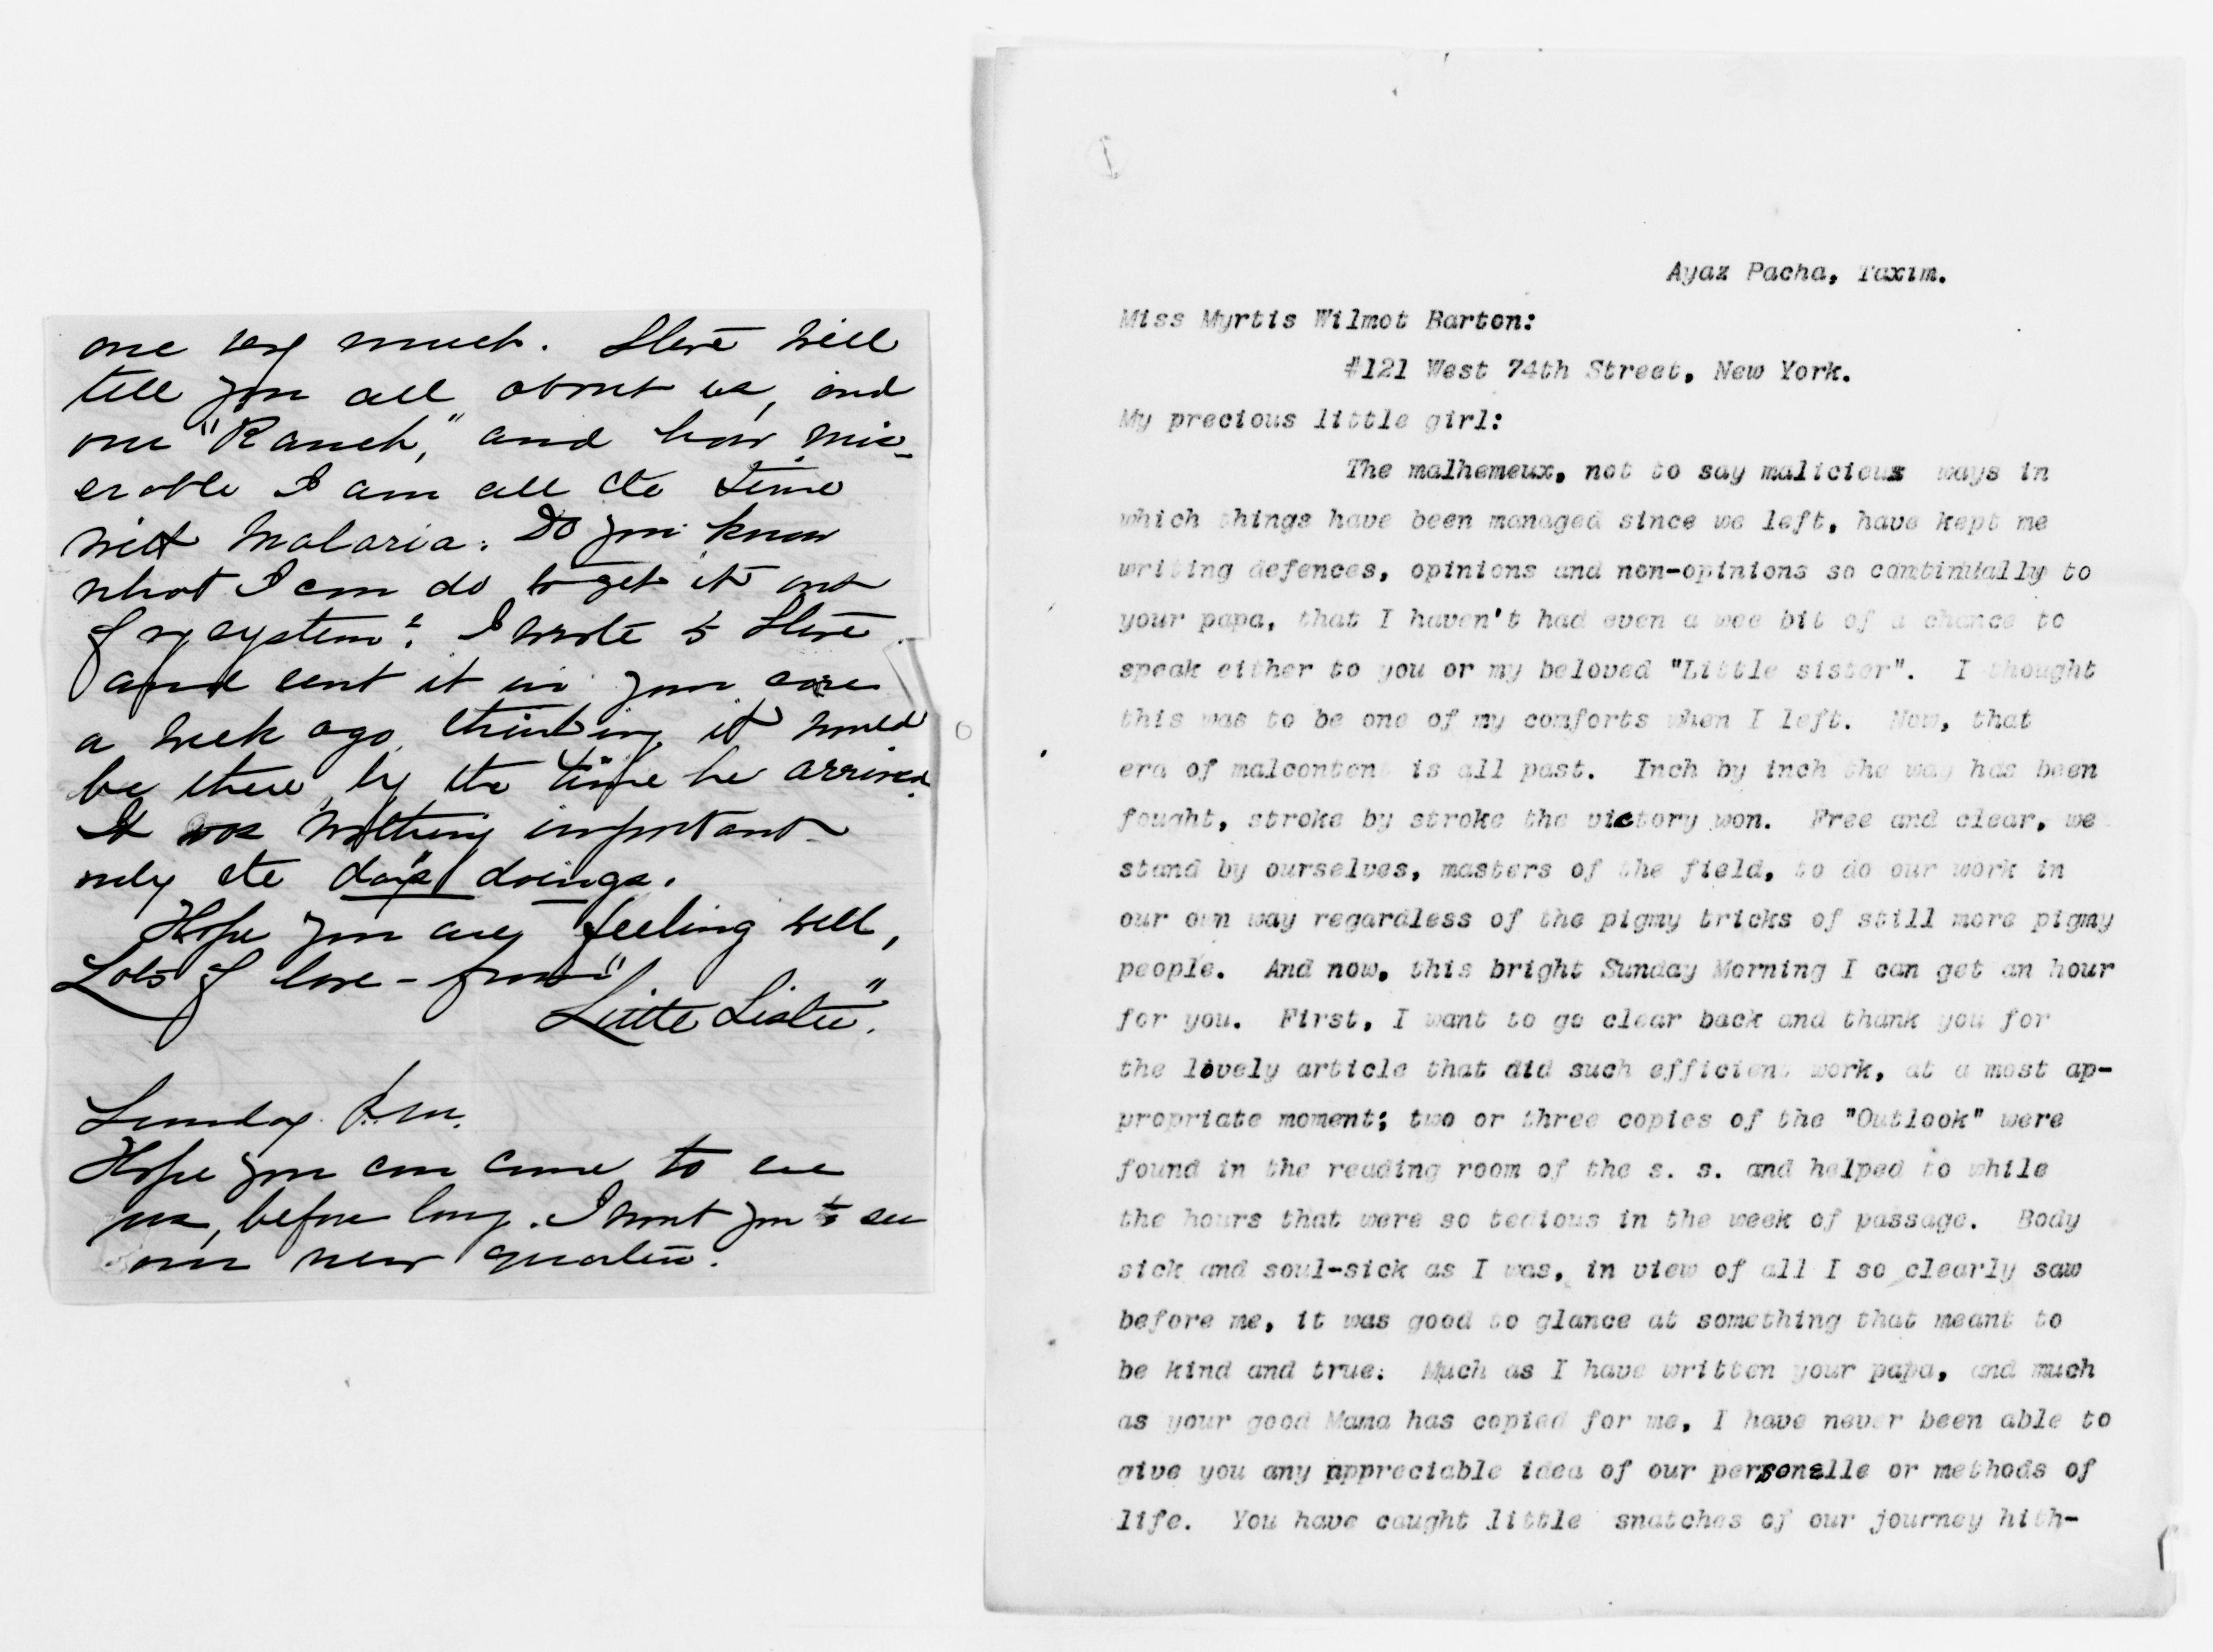 one very much. Steve will
tell you all about us, and
our "Ranch," and how mis-
erable I am all the time
with Malaria. Do you know
what I can do to get it out
of my system? I wrote to Steve
and sent it in your care
a week ago, thinking it would
be there by the time he arrived.
It was nothing important
only the day's doings.
Hope you are feeling well,
Lots of love - from
"Little Sister".
Sunday P.M.
Hope you can come to see
us, before long. I want you to see
our new quarters.
I
Ayaz Pacha, Taxim.
Miss Myrtis Wilmot Barton:
#121 West 74th Street, New York.
My precious little girl:
The malhemeux, not to say malicious ways in
which things have been managed since we left, have kept me
writing defences, opinions and non-opinions so continually to
your papa, that I haven't had even a wee bit of a chance to
speak either to you or my beloved "Little sister". I thought
this was to be one of my comforts when I left. Now, that
era of malcontent is all past. Inch by inch the way has been
fought, stroke by stroke the victory won. Free and clear, we
stand by ourselves, masters of the field, to do our work in
our own way regardless of the pigmy tricks of still more pigmy
people. And now, this bright Sunday Morning I can get an hour
for you. First, I want to go clear back and thank you for
the lovely article that did such efficient work, at a most ap-
propriate moment; two or three copies of the "Outlook" were
found in the reading room of the s. s. and helped to while
the hours that were so tedious in the week of passage. Body
sick and soul-sick as I was, in view of all I so clearly saw
before me, it was good to glance at something that meant to
be kind and true. Much as I have written your papa, and much
as your good Mama has copied for me, I have never been able to
give you any appreciable idea of our personelle or methods of
life. You have caught little snatches of our journey hith-